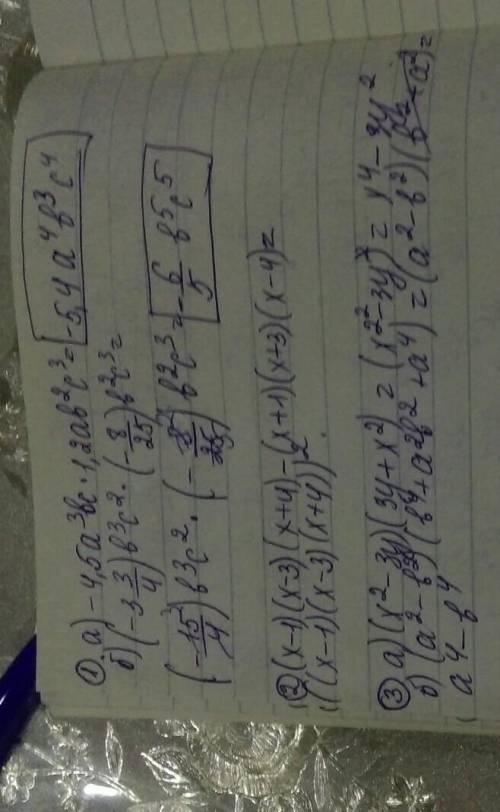 ① а) -4,5a³bc · 1,2ab²c³ = -5,4a⁴b³c⁴
б) (-3 3/4)b³c² · (-8/25)b²c³ =
(-15/4)b³c² · (-8/25)b²c³ = -6/5 b⁵c⁵
② (x-1)(x-3)(x+4)-(x+1)(x+3)(x-4)=
((x-1)(x-3)(x+4))²
③ а) (x²-3y)(3y+x²) = (x²-3y)² = x⁴-3y²
б) (a²-b²)(b⁴+a²b²+a⁴) = (a²-b²)(b²+a²)=
a⁴-b⁴